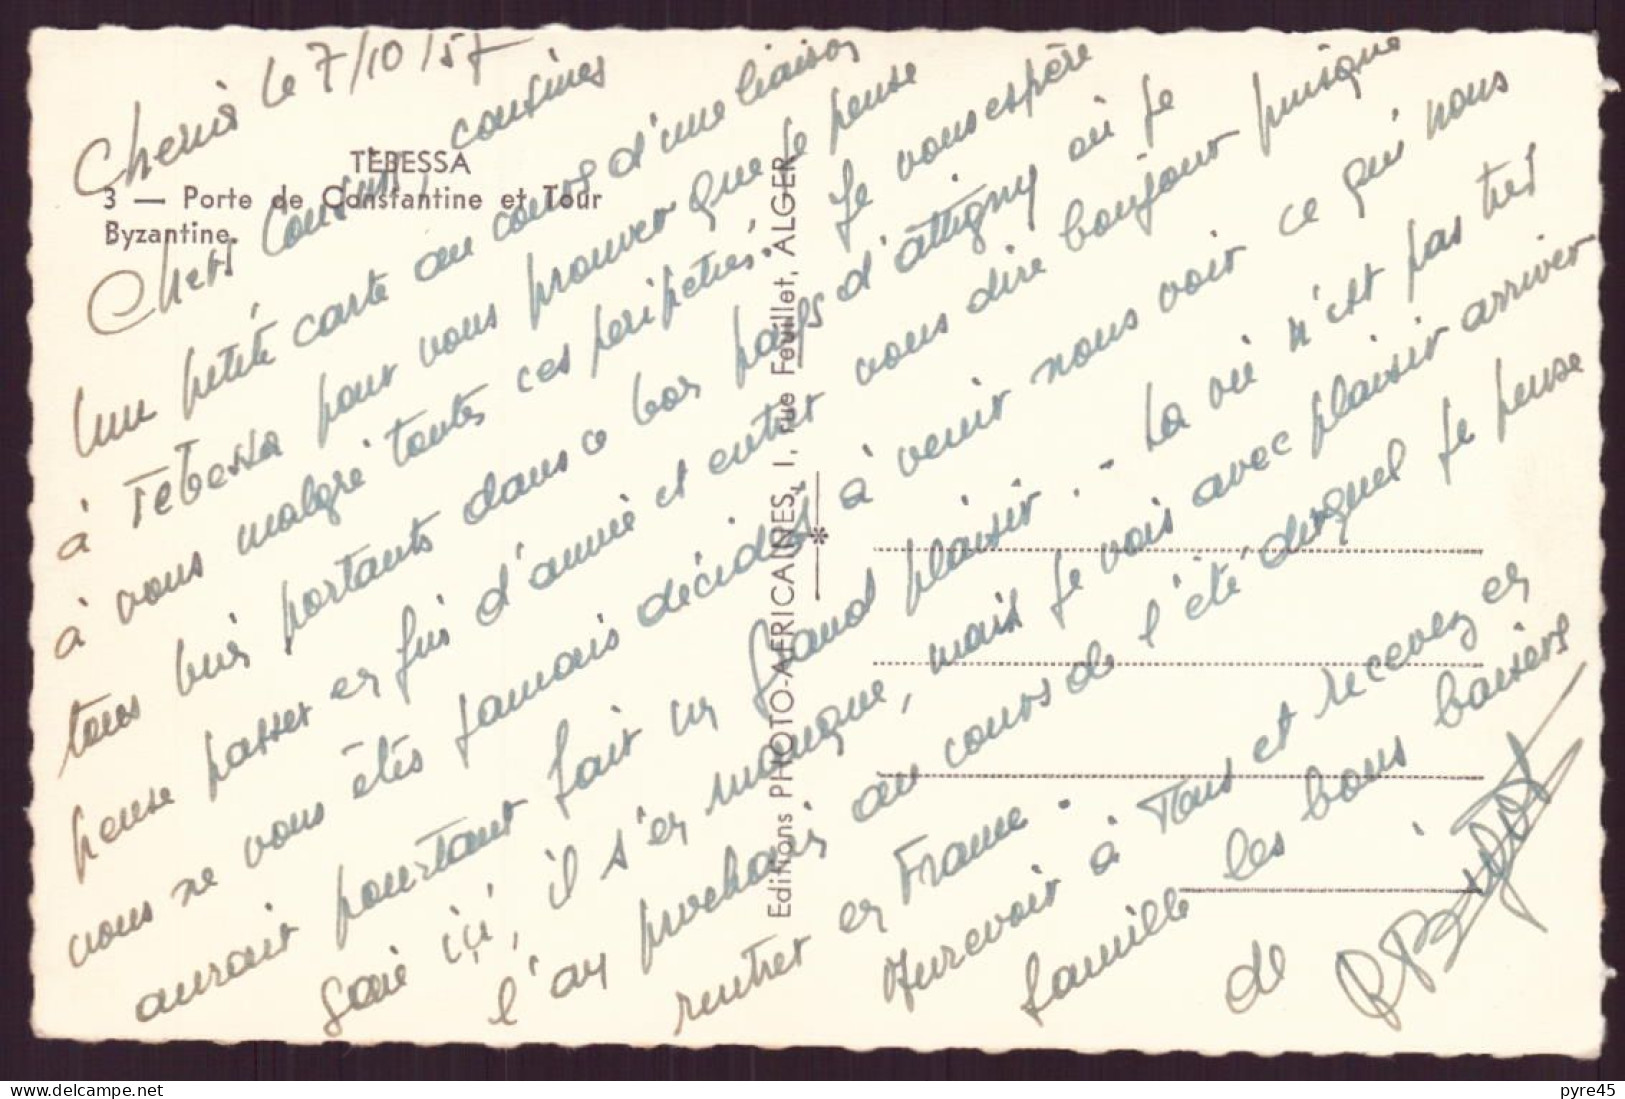 Cheria le 7/10/57
TEBESSA
3 — Porte de Constantine et Tour
Byzantine.
Chers Cousins, cousines
Une petite carte au cours d'une liaison
à Tebessa pour vous prouver que je pense
à vous malgré toutes ces peripeties. Je vous espère
tous bien portants dans ce bas pays d'attigny où je
pense passer en fin d'année et entrer vous dire bonjour puisque
vous ne vous êtes jamais décidés à venir nous voir ce qui nous
aurait pourtant fait un grand plaisir. - La vie n'est pas très
gaie içi, il s'en manque, mais je vois avec plaisir arriver
l'an prochain au cours de l'été duquel je pense
rentrer en France.
Aurevoir à Tous et recevez en
famille les bons baisers
de
Editions PHOTO-AFRICAINES, 1, rue Feuillet, ALGER
pyre45